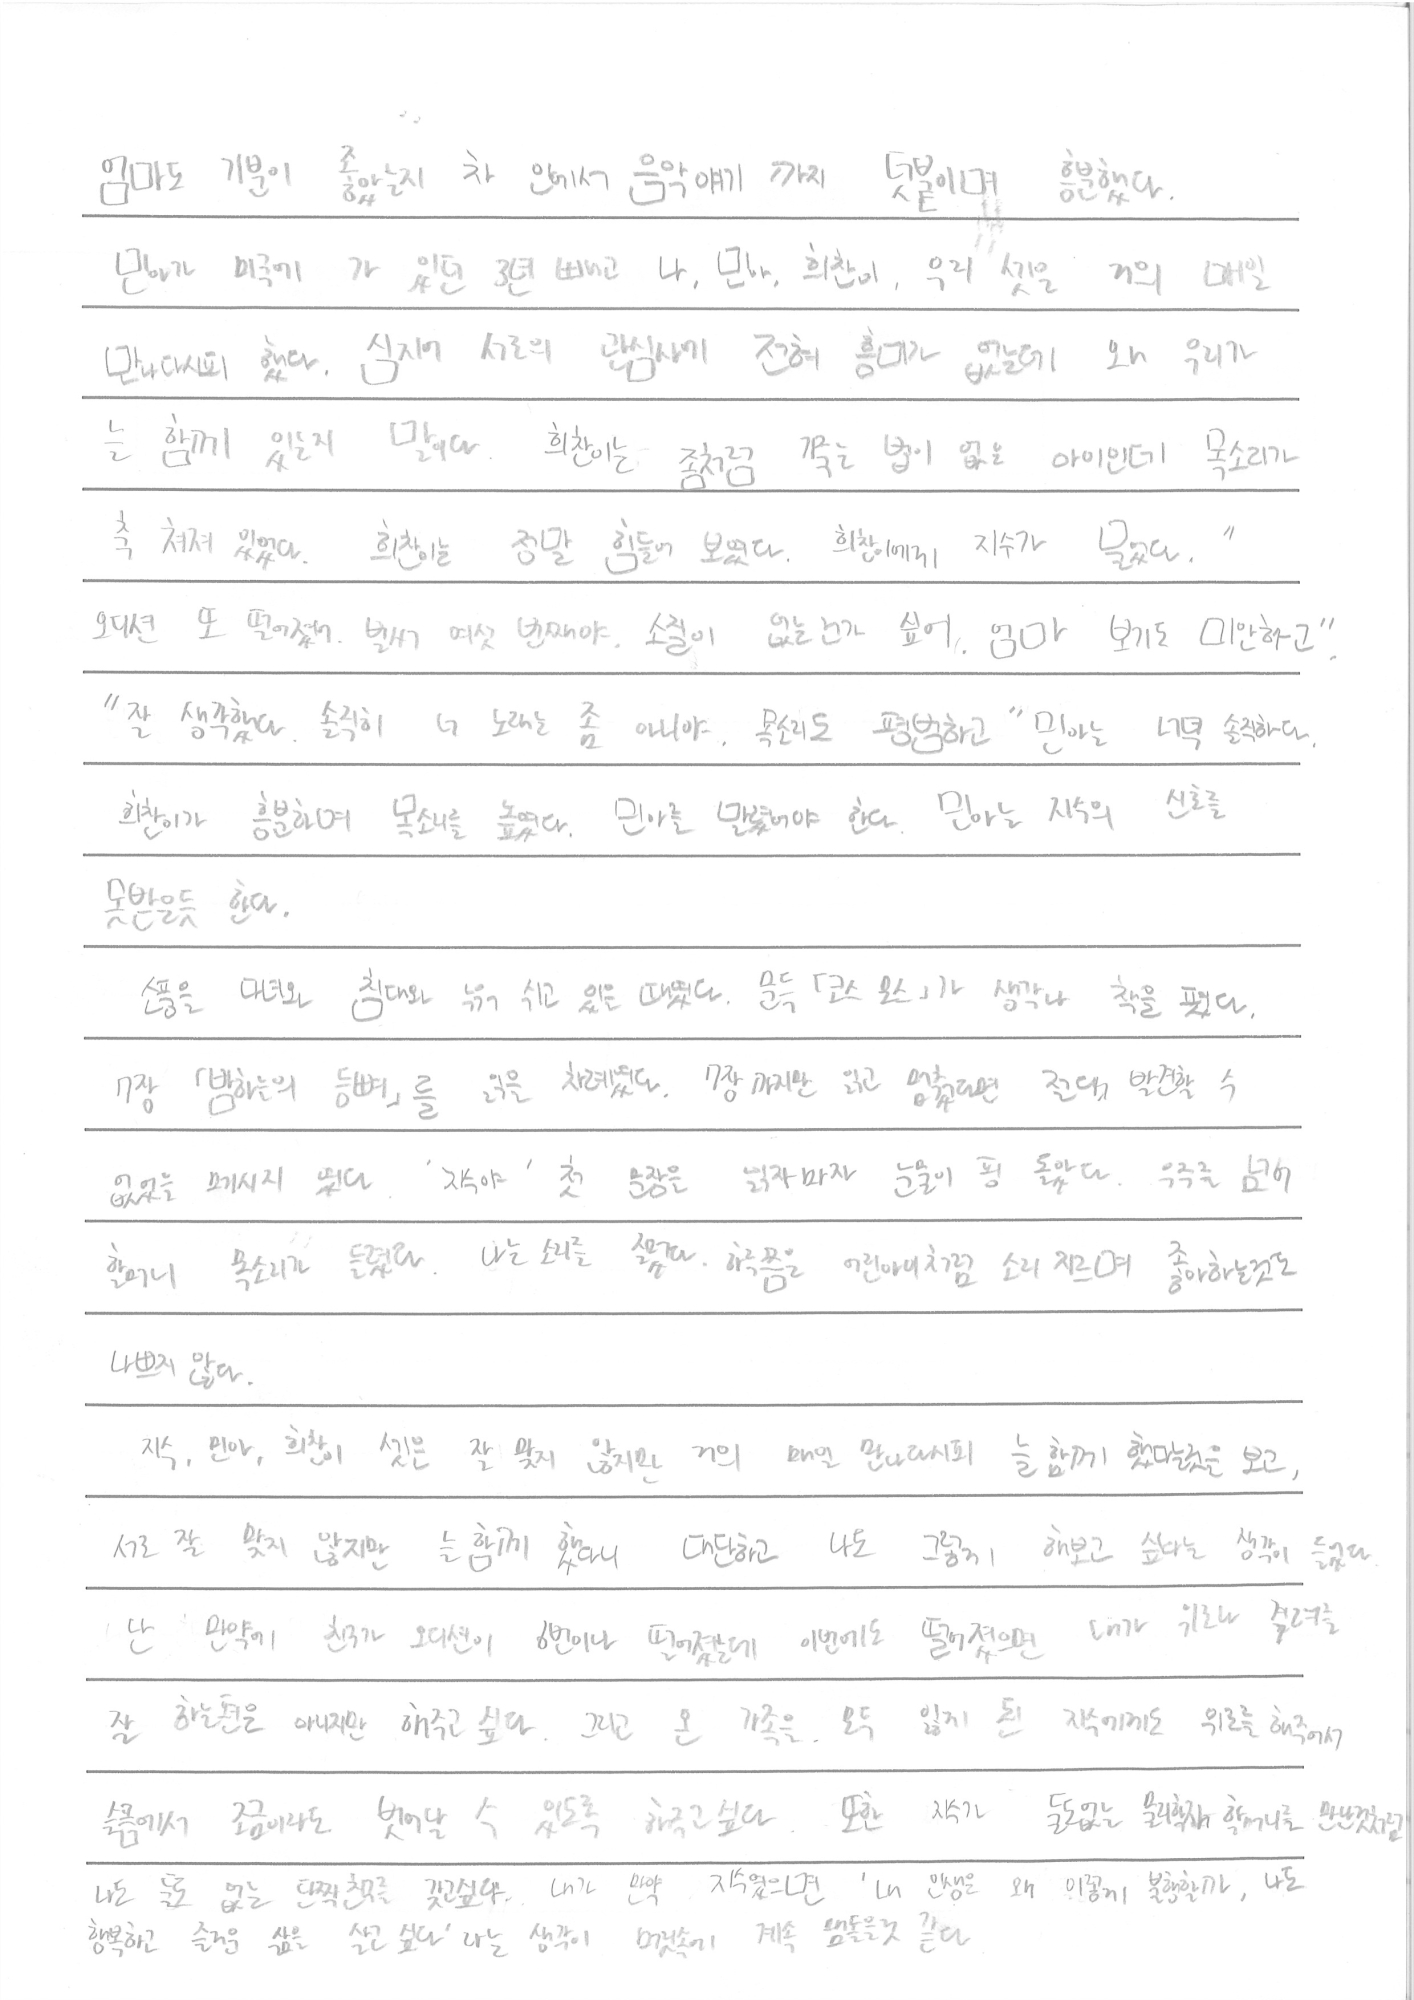 엄마도 기분이 좋았는지 차 안에서 음악얘기 까지 덧붙이며 흥분했다.
민아가 미국에 가 있던 3년 빼고 나, 민아, 희찬이, 우리 셋은 거의 매일
만나다시피 했다. 심지어 서로의 관심사에 전혀 흥미가 없는데 왜 우리가
늘 함께 있는지 말이다. 희찬이는 좀처럼 꺾는 법이 없은 아이인데 목소리가
축 처져 있었다. 희찬이는 정말 힘들어 보였다. 희찬이에게 지수가 물었다. "
오디션 또 떨어졌어. 벌써 여섯 번째야. 소질이 없는 건가 싶어. 엄마 보기도 미안하고".
"잘 생각했다. 솔직히 너 노래는 좀 아니야. 목소리도 평범하고" 민아는 너무 솔직하다.
희찬이가 흥분하며 목소리를 높였다. 민아를 말렸어야 한다. 민아는 지수의 신호를
못받은듯 한다.
선풍을 다녀와 침대와 누워 쉬고 있은 때였다. 문득 「코스모스」가 생각나 책을 폈다.
7장 「밤하늘의 등뼈」를 읽은 차례였다. 7장까지만 읽고 멈췄다면 절대 발견할 수
없었을 메시지 였다. '지수야' 첫 문장은 읽자마자 눈물이 핑 돌았다. 우주를 넘어
할머니 목소리가 들렸다. 나는 소리를 질렀다. 하루쯤은 어린아이처럼 소리 지르며 좋아하는것도
나쁘지 않다.
지수, 민아, 희찬이 셋은 잘 맞지 않지만 거의 매일 만나다시피 늘 함께 했다는것을 보고,
서로 잘 맞지 않지만 늘 함께 했다니 대단하고 나도 그렇게 해보고 싶다는 생각이 들었다.
난 만약에 친구가 오디션이 6번이나 떨어졌는데 이번에도 떨어졌으면 내가 위로나 격려를
잘 하는편은 아니지만 해주고 싶다. 그리고 온 가족을 모두 잃게 된 지수에게도 위로를 해주어서
슬픔에서 조금이라도 벗어날 수 있도록 해주고 싶다. 또한 지수가 둘도없는 물리학자 할머니를 만난것처럼
나도 둘도 없는 단짝친구를 갖고싶다. 내가 만약 지수였으면 '내 인생은 왜 이렇게 불행할까, 나도
행복하고 즐거운 삶을 살고 싶다' 라는 생각이 머릿속에 계속 맴돌을것 같다